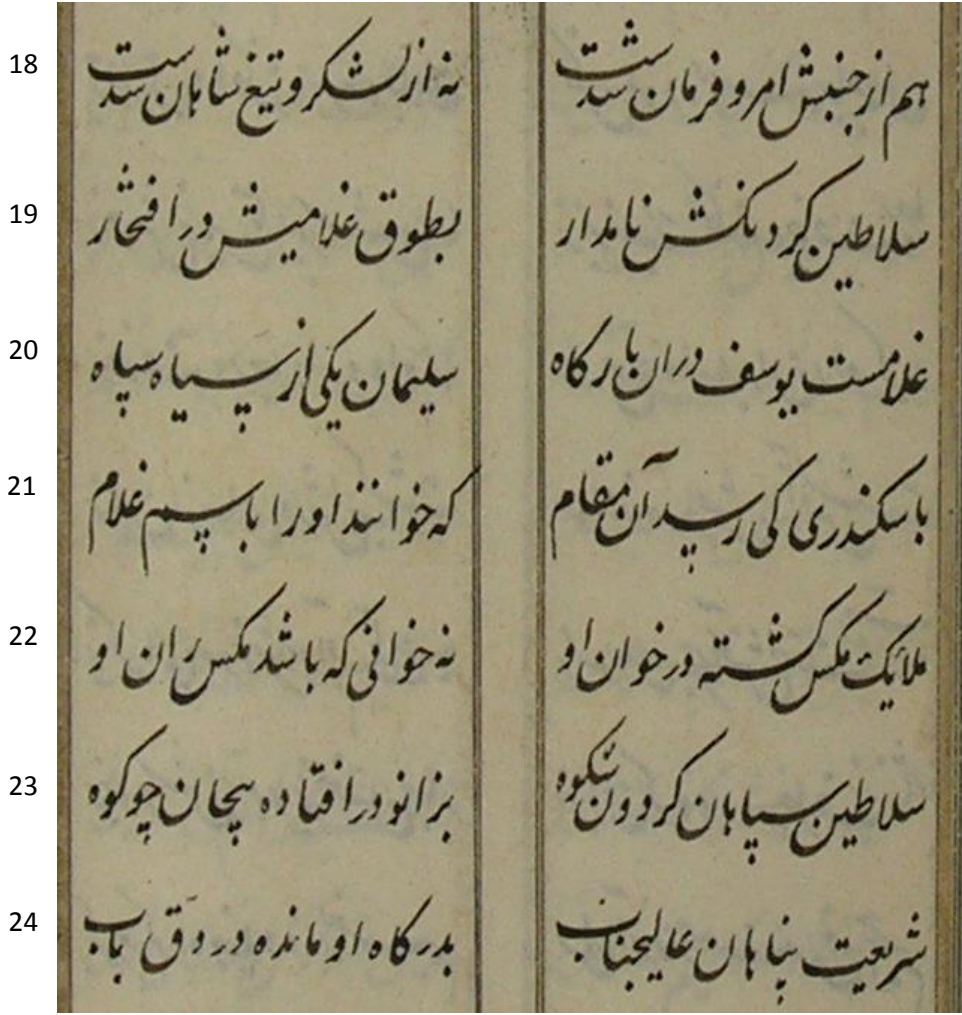 18 هم از جنبش امر و فرمان شدست نه از لشکر و تیغ شاهان شدست
19 سلاطین کردنکش نامدار بطوق غلامیش در افتخار
20 غلامست یوسف دران بارکاه سلیمان یکی از سپاه سپاه
21 باسکندری کی رسد آن مقام که خوانند او را باسم غلام
22 ملایک مکس کشته در خوان او نه خوانی که باشد مکس ران او
23 سلاطین سپاهان کردون شکوه بزانو در افتاده پیچان چو کوه
24 شریعت پناهان عالیجناب بدرکاه او مانده در دق باب